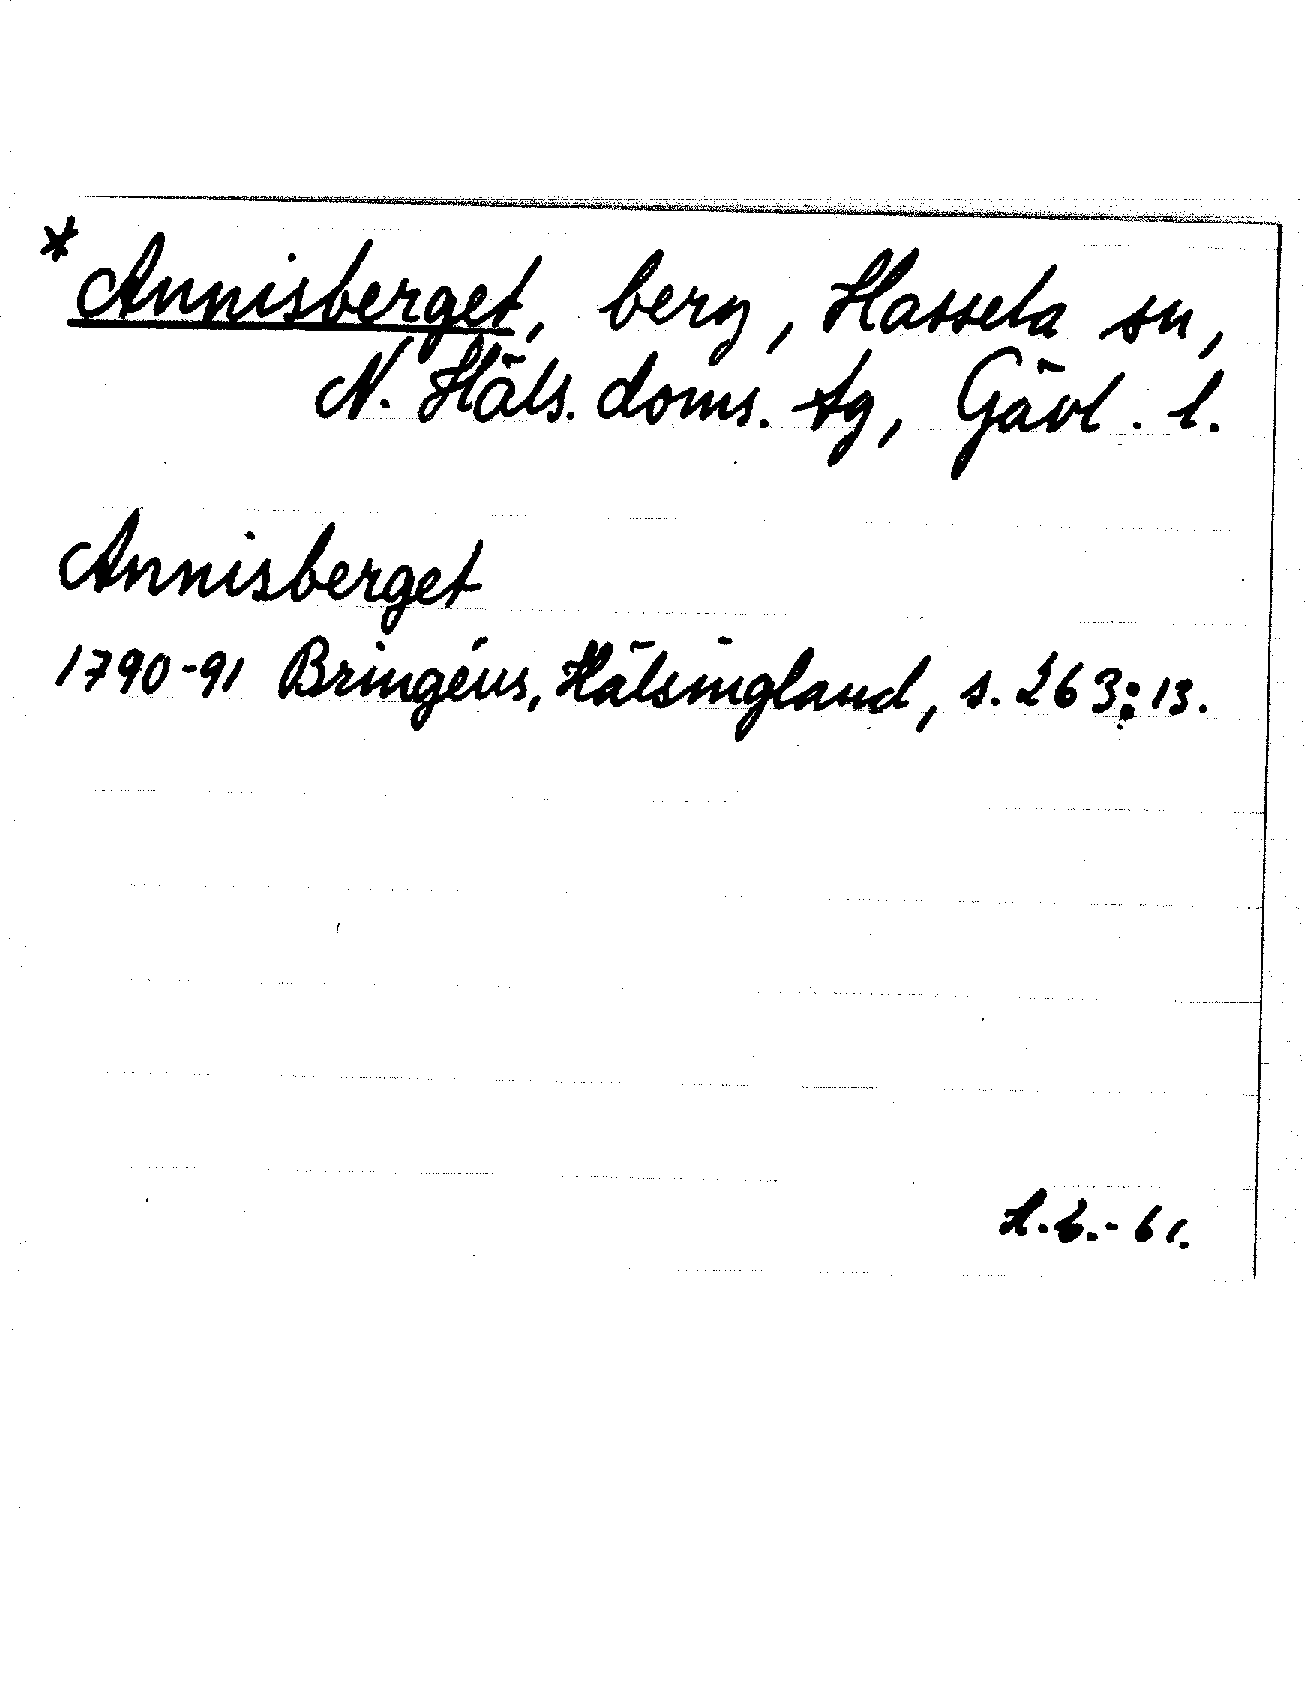 * Annisberget, berg, Hassela sn,
N. Häls. doms. tg, Gävl. l.
Annisberget
1790-91 Bringéus, Hälsingland, s. 263:13.
-61.